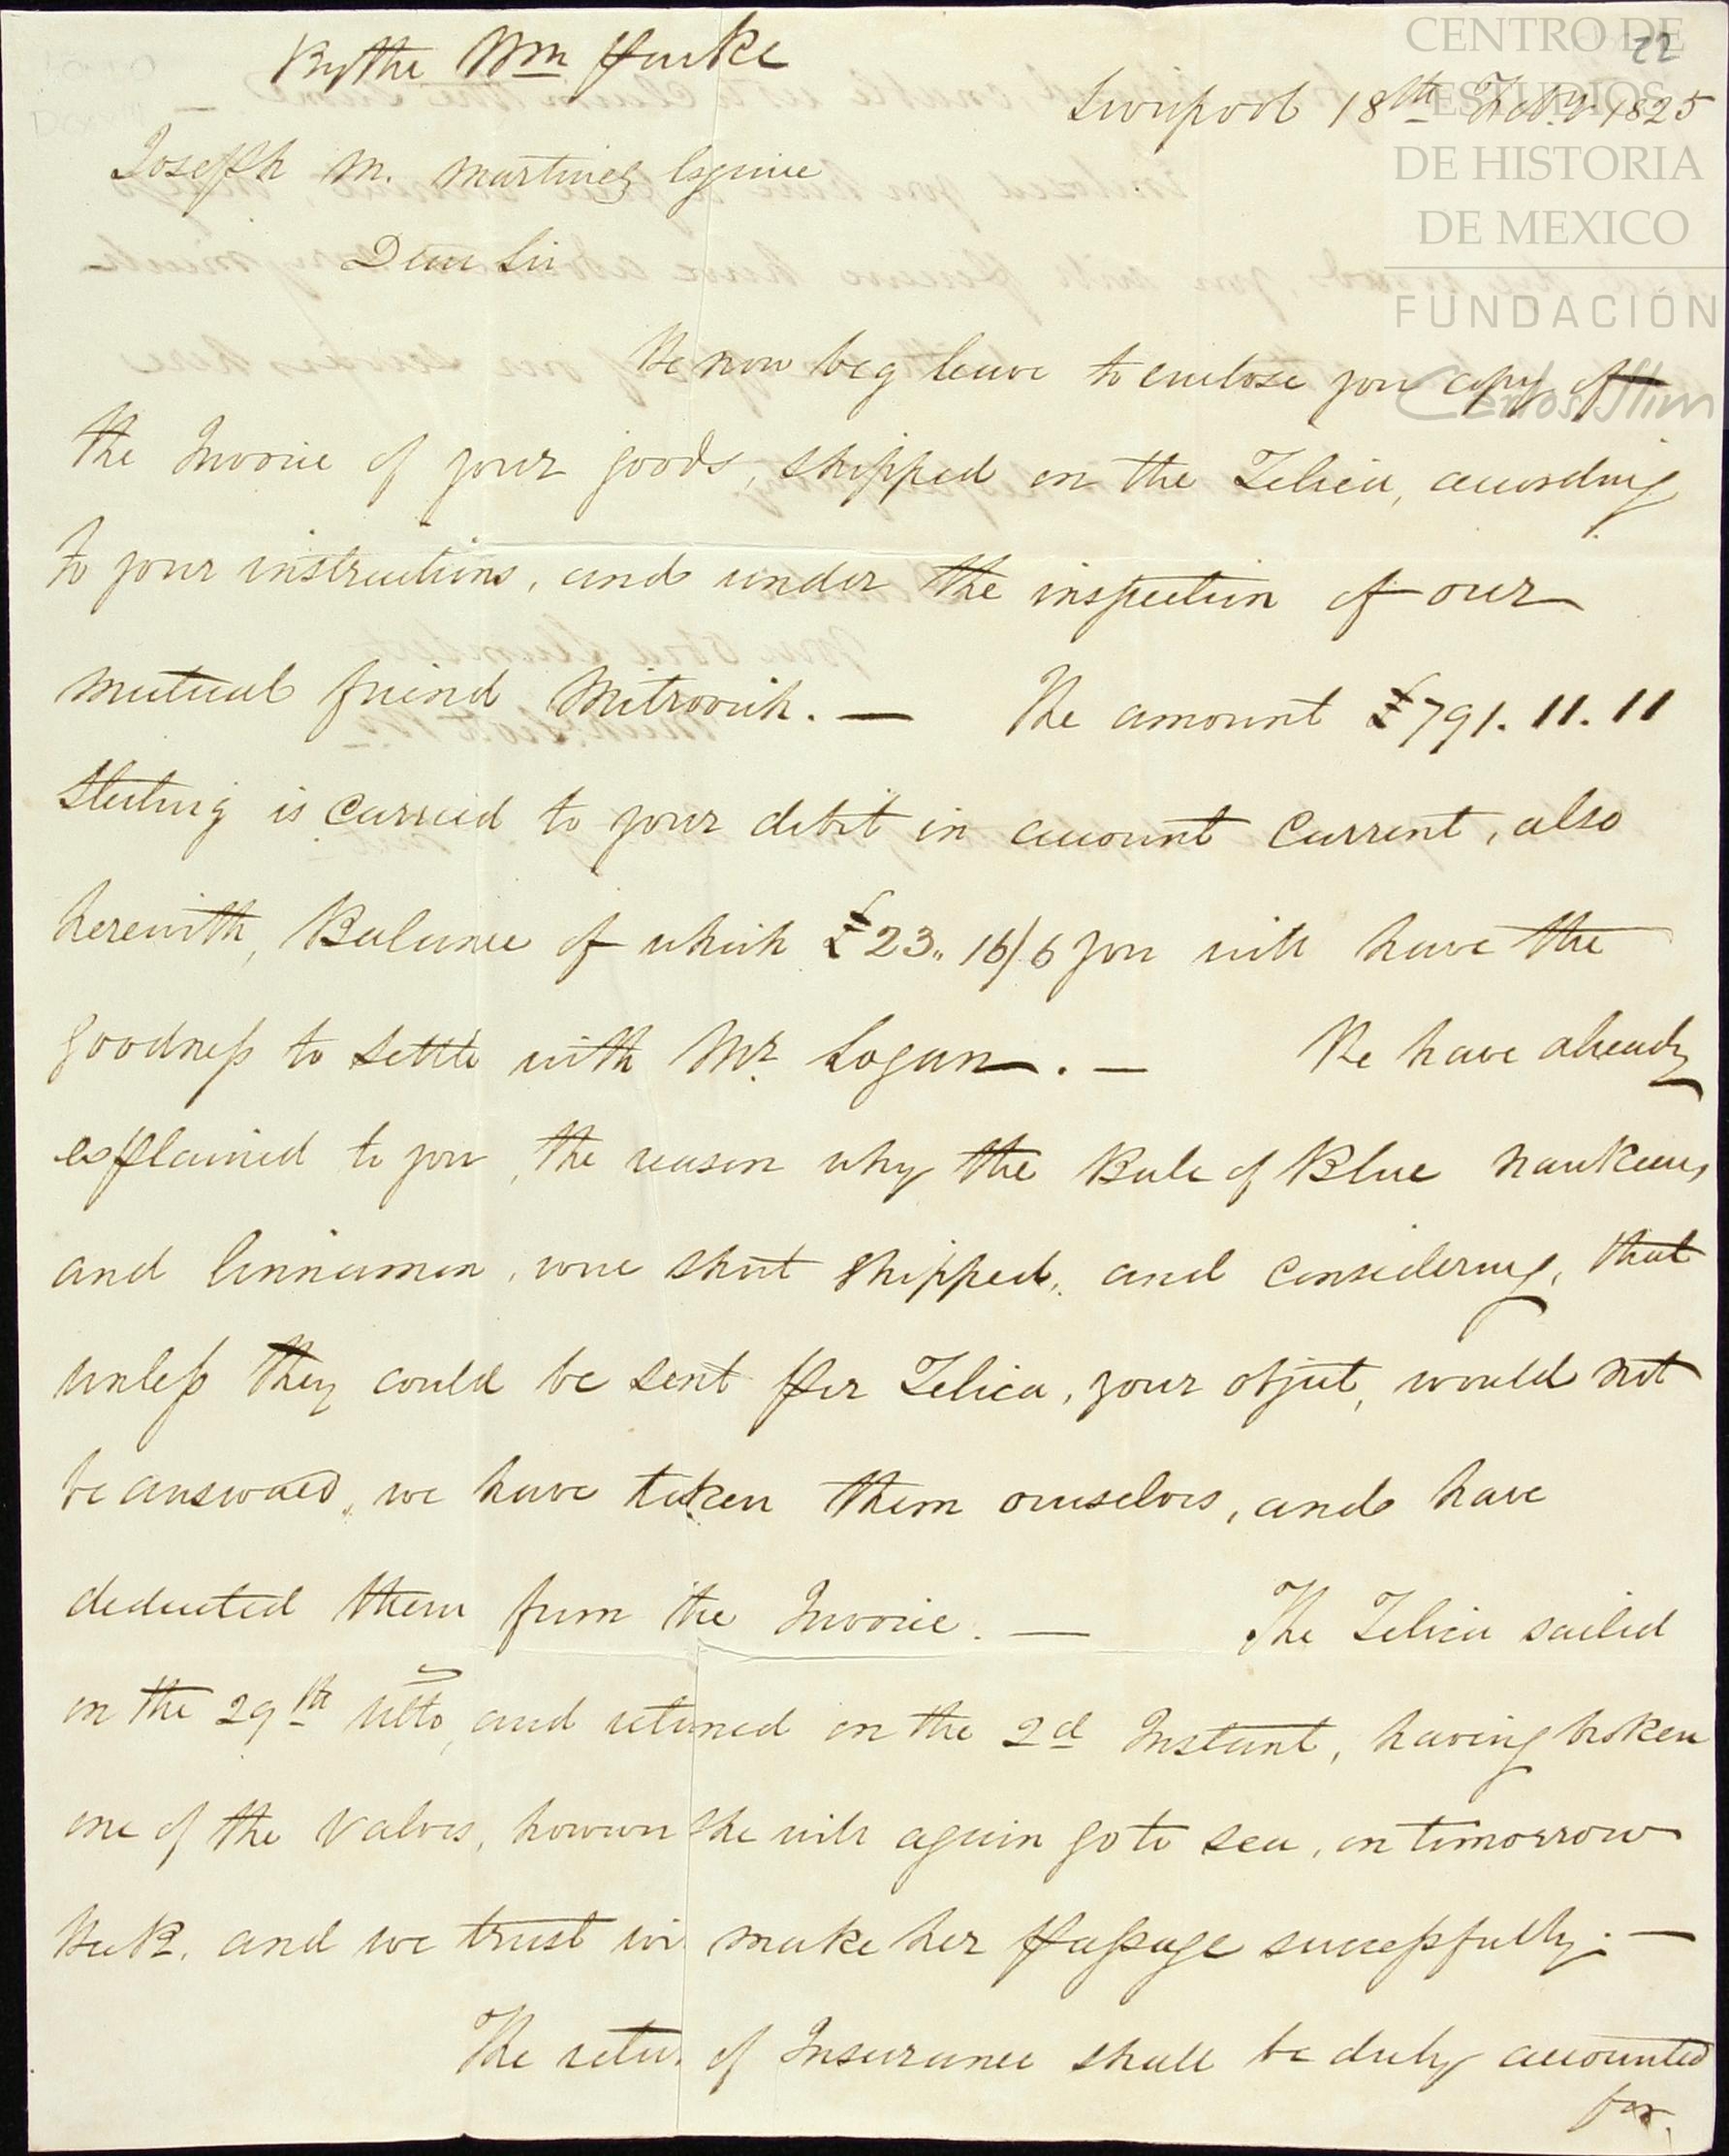 22
By the Wm Parke
Liverpool 18th Feby. 1825
Joseph M. Martinez Esquire
Dear Sir
We now beg leave to enclose you copy of
the Invoice of your goods, shipped on the Telica, according
to your instructions, and under the inspection of our
mutual friend Mitrovich. — The amount £791.11.11
Sterling is carried to your debit in account Current, also
herewith, Balance of which £23,, 16/6 you will have the
goodness to settle with Mr. Logan. — We have already
explained to you, the reason why the Bale of Blue nankeens,
and Cinnamon, were short shipped, and considering, that
unless they could be sent per Telica, your object, would not
be answered, we have taken them ourselves, and have
deducted them from the Invoice. — The Telica sailed
on the 29th Ulto, and returned on the 2d Instant, having broken
one of the Valves, however she will again go to sea, on tomorrow
Week. and we trust will make her passage successfully. —
The retu. of Insurance shall be duly accounted
for.
CENTRO DE
ESTUDIOS
DE HISTORIA
DE MEXICO
FUNDACIÓN
Carlos Slim